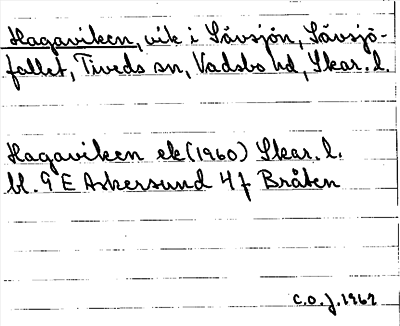 Hagaviken, vik i Sävsjön, Sävsjö-
fallet, Tiveds sn, Vadsbo hd, Skar. l.
Hagaviken ek (1960) Skar. l.
bl. 9 E Askersund 4f Bråten
C.O.J. 1962